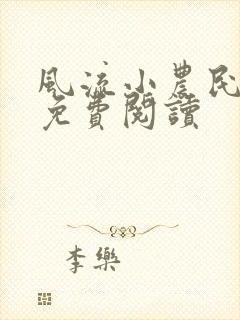 風流小農民
免費閱讀
李樂